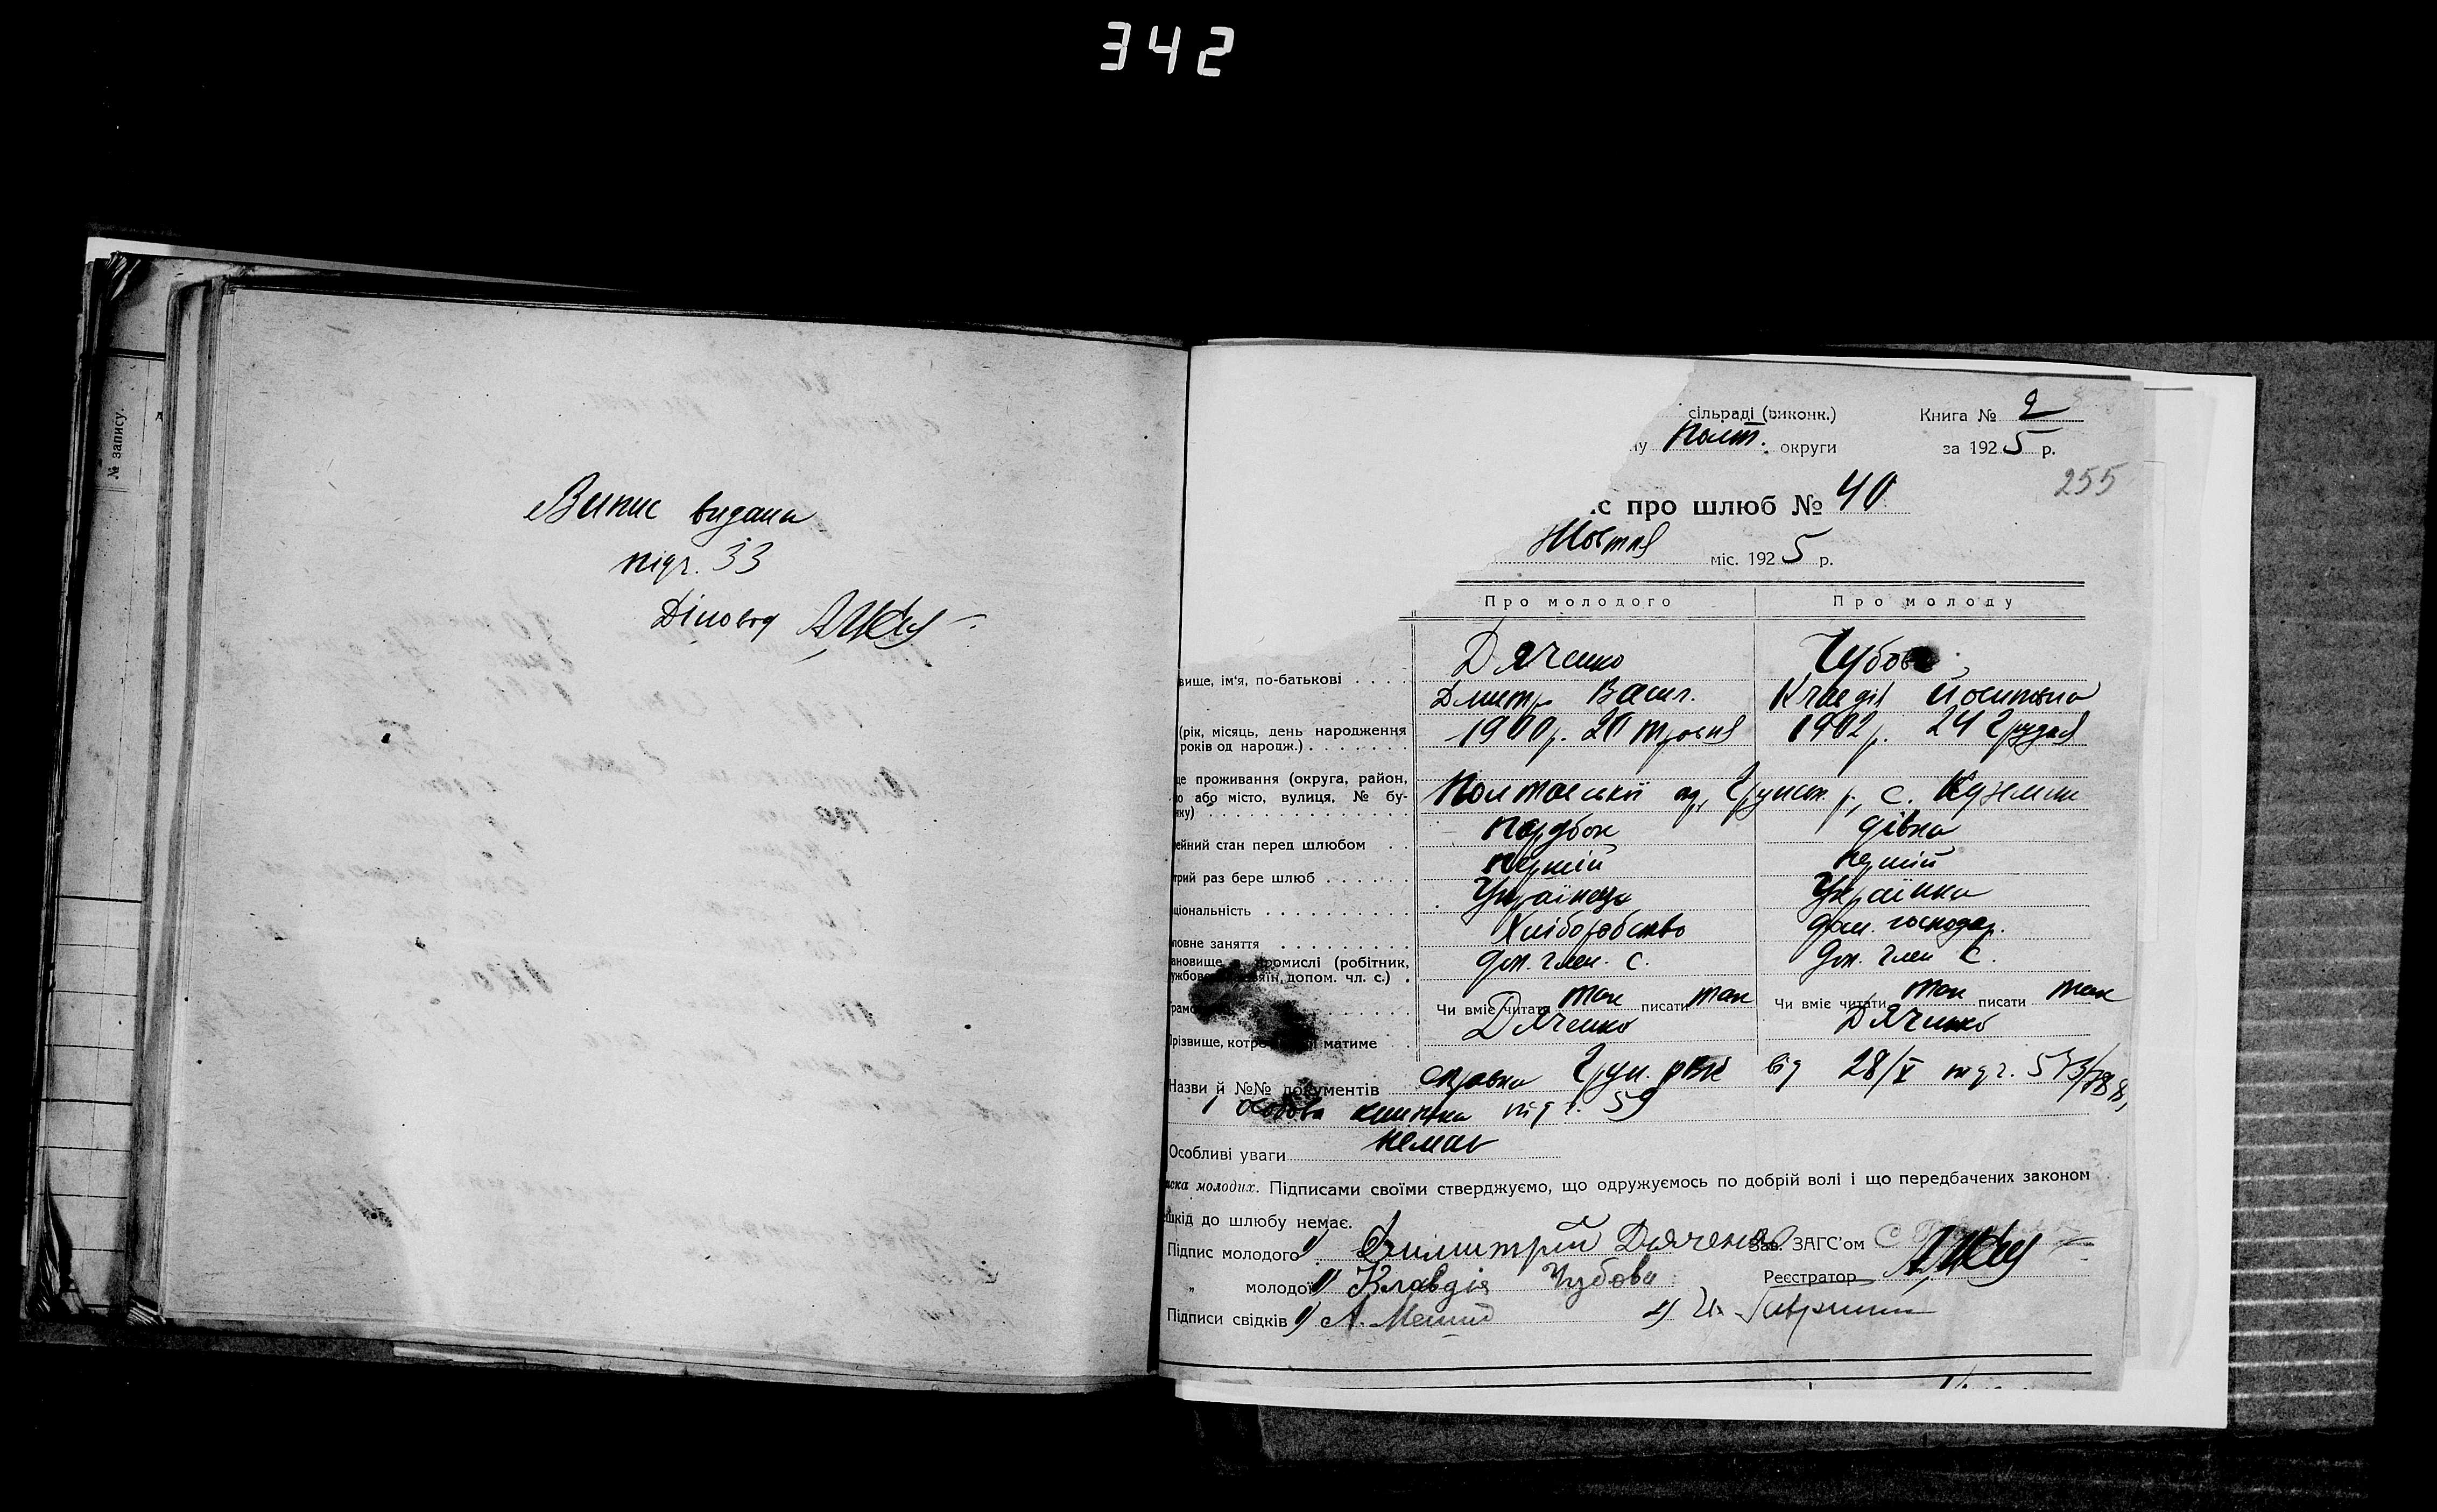 342
№ запису.
Випис видана
підч. 33
Діловод
сільраді (виконк.) Книга № 2
ну Полт. округи за 1925 р.
255
с про шлюб № 40
Жовтня міс. 1925 р.
Про молодого Про молоду
Дяченко Чубова
вище, ім'я, по-батькові
Дмитр Васил. Клавдія Йосипівна
(рік, місяць, день народження 1900 р. 20 травня 1902 р. 24 Грудня
років од народж.)
це проживання (округа, район,
о або місто, вулиця, № бу- Полтавської ок, Грунськ. р., с. Куземин
нку)
ейний стан перед шлюбом парубок дівка
трий раз бере шлюб перший перший
ціональність Українець Українка
ловне заняття Хліборобство дом. господар.
ановище в промислі (робітник, доп. член. С. доп. член С.
ужбове доп. чл. с.)
Чи вміє читати так писати так Чи вміє читати так писати так
різвище, котре матиме Дяченко Дяченко
Назви й №№ документів справка Грун. РВК від 28/V підч. 573/788,
і особова книжка підч. 59
Особливі уваги немає
иска молодих. Підписами своїми стверджуємо, що одружуємось по добрій волі і що передбачених законом
шкід до шлюбу немає.
Підпис молодого 1) Димитрий Дяченко Зав. ЗАГС'ом
„ молодої 1) Клавдія Чубова Реєстратор
Підписи свідків 1) А. 2)